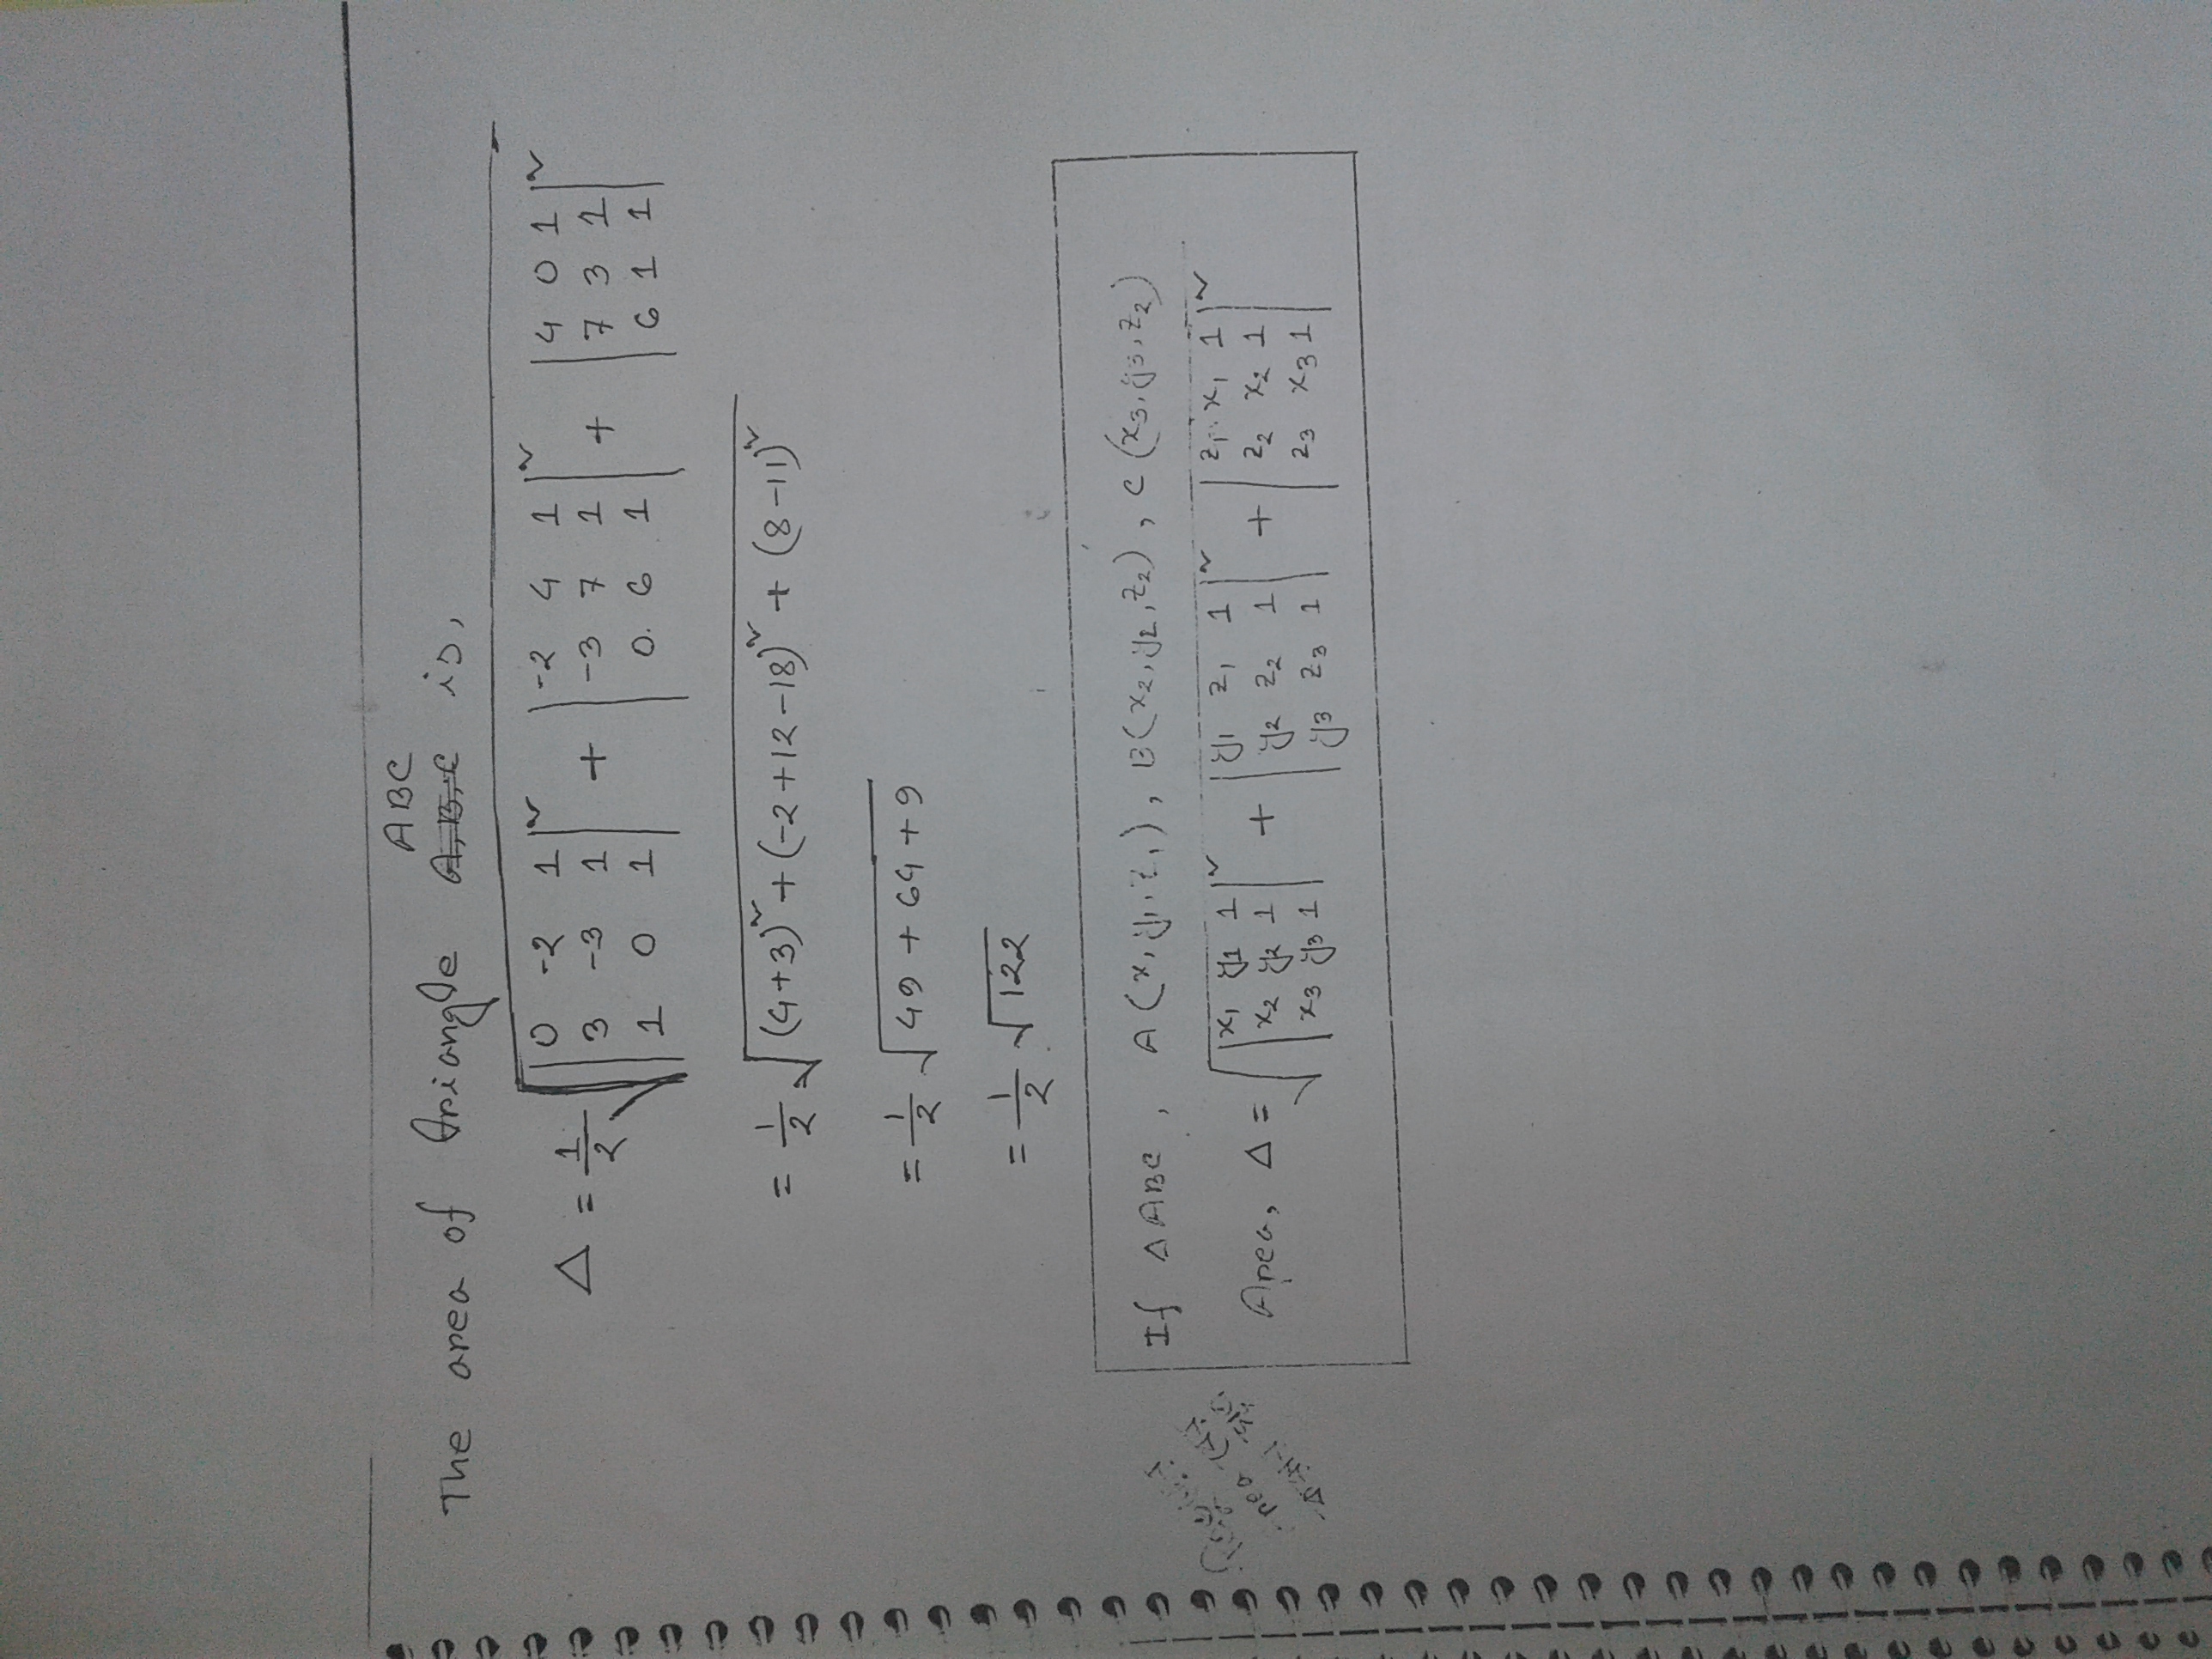 The area of triangle ABC is,
Δ = 1/2 √ |0 -2 1; 3 -3 1; 1 0 1|² + |-2 4 1; -3 7 1; 0. 6 1|² + |4 0 1; 7 3 1; 6 1 1|²
= 1/2 √ (4+3)² + (-2+12-18)² + (8-11)²
= 1/2 √ 49 + 64 + 9
= 1/2 √ 122
If ΔABC, A(x₁, y₁, z₁), B(x₂, y₂, z₂), C(x₃, y₃, z₂)
Area, Δ = √ |x₁ y₁ 1; x₂ y₂ 1; x₃ y₃ 1|² + |y₁ z₁ 1; y₂ z₂ 1; y₃ z₃ 1|² + |z₁ x₁ 1; z₂ x₂ 1; z₃ x₃ 1|²